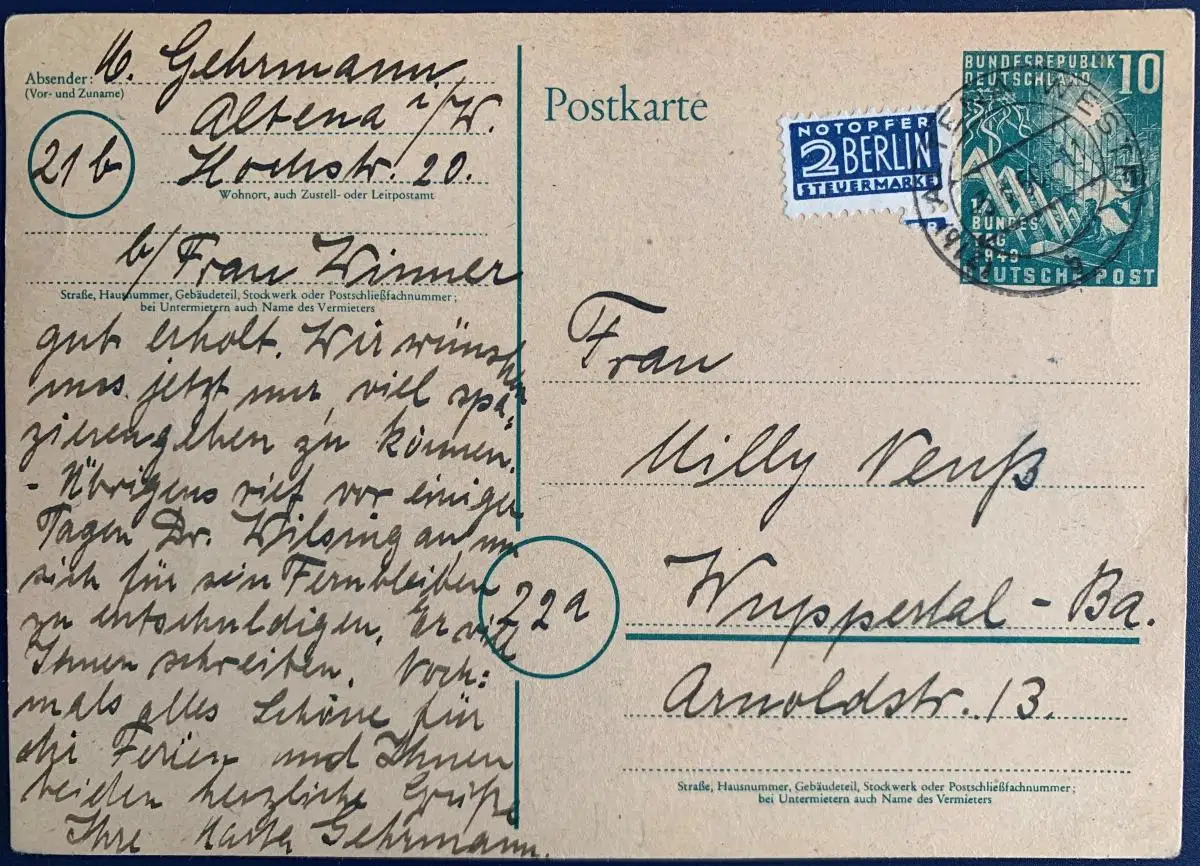 Absender: M. Gehrmann
(Vor- und Zuname)
Altena i/W.
21b
Hochstr. 20.
Wohnort, auch Zustell- oder Leitpostamt
b/ Frau Winner
Straße, Hausnummer, Gebäudeteil, Stockwerk oder Postschließfachnummer;
bei Untermietern auch Name des Vermieters
gut erholt. Wir wünschen
uns jetzt nur, viel spa-
zierengehen zu können.
- Übrigens rief vor einigen
Tagen Dr. Wilsing an, um
sich für sein Fernbleiben
zu entschuldigen. Er will
Ihnen schreiben. Noch:
mals alles Schöne für
die Ferien und Ihnen
beiden herzliche Grüße
Ihre Gehrmann.
Postkarte
NOTOPFER
2 BERLIN
STEUERMARKE
BUNDESREPUBLIK
DEUTSCHLAND
10
1.
BUNDES
TAG
1949
DEUTSCHE POST
Frau
Milly Neuß
22a
Wuppertal - Ba.
Arnoldstr. 13.
Straße, Hausnummer, Gebäudeteil, Stockwerk oder Postschließfachnummer;
bei Untermietern auch Name des Vermieters